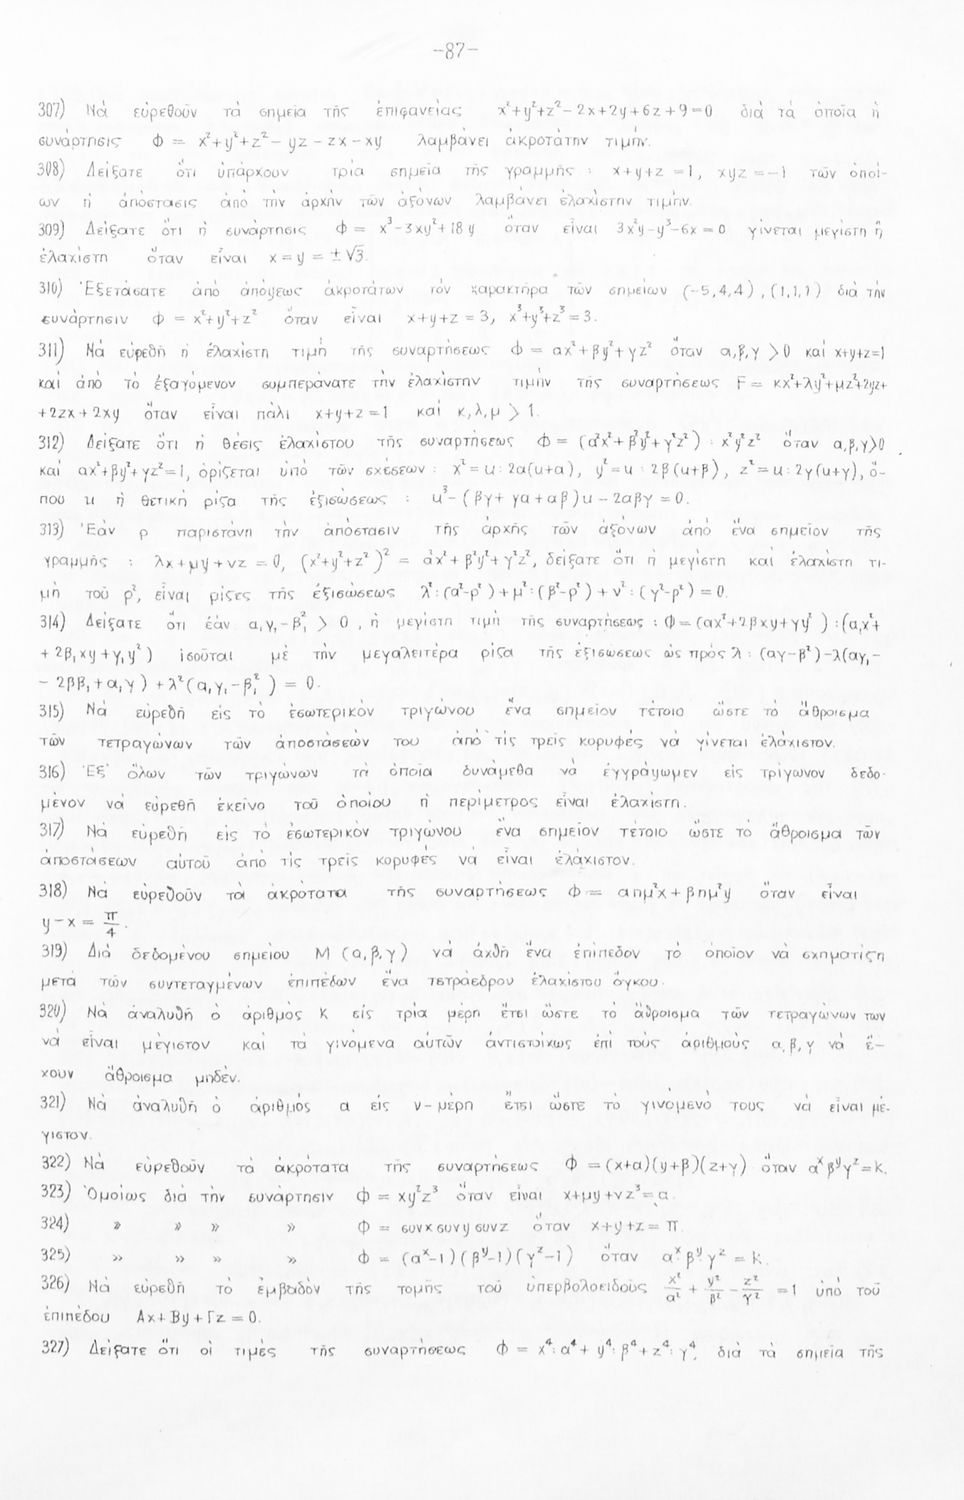 -87-
307) Νά εὑρεθοῦν τά σημεῖα τῆς ἐπιφανείας x²+y²+z²-2x+2y+6z+9=0 διά τά ὁποῖα ἡ
συνάρτησις Φ = x²+y²+z²- yz - zx - xy λαμβάνει ἀκροτάτην τιμήν.
308) Δείξατε ὅτι ὑπάρχουν τρία σημεῖα τῆς γραμμῆς : x+y+z = 1, xyz = -1 τῶν ὁποί-
ων ἡ ἀπόστασις ἀπό τήν ἀρχήν τῶν ἀξόνων λαμβάνει ἐλαχίστην τιμήν.
309) Δείξατε ὅτι ἡ συνάρτησις Φ = x³-3xy²+18y ὅταν εἶναι 3x²y-y³-6x=0 γίνεται μεγίστη ἤ
ἐλαχίστη ὅταν εἶναι x = y = ±√3.
310) Ἐξετάσατε ἀπό ἀπόψεως ἀκροτάτων τόν χαρακτῆρα τῶν σημείων (-5,4,4), (1,1,1) διά τήν
συνάρτησιν Φ = x²+y²+z² ὅταν εἶναι x+y+z = 3, x³+y³+z³ = 3.
311) Νά εὑρεθῆ ἡ ἐλαχίστη τιμή τῆς συναρτήσεως Φ = αx²+βy²+γz² ὅταν α,β,γ > 0 καί x+y+z=1
καί ἀπό τό ἐξαγόμενον συμπεράνατε τήν ἐλαχίστην τιμήν τῆς συναρτήσεως F = κx²+λy²+μz²+2yz+
+2zx+2xy ὅταν εἶναι πάλι x+y+z=1 καί κ,λ,μ > 1.
312) Δείξατε ὅτι ἡ θέσις ἐλαχίστου τῆς συναρτήσεως Φ = (α²x²+β²y²+γ²z²) : x²y²z² ὅταν α,β,γ>0
καί αx²+βy²+γz²=1, ὁρίζεται ὑπό τῶν σχέσεων : x² = u : 2α(u+α), y² = u : 2β(u+β), z² = u : 2γ(u+γ), ὅ-
που u ἡ θετική ρίζα τῆς ἐξισώσεως : u³- (βγ+ γα+αβ)u - 2αβγ = 0.
313) Ἐάν ρ παριστάνη τήν ἀπόστασιν τῆς ἀρχῆς τῶν ἀξόνων ἀπό ἕνα σημεῖον τῆς
γραμμῆς : λx+μy+νz = 0, (x²+y²+z²)² = α²x²+β²y²+γ²z², δείξατε ὅτι ἡ μεγίστη καί ἐλαχίστη τι-
μή τοῦ ρ², εἶναι ρίζες τῆς ἐξισώσεως λ² : (α²-ρ²)+μ² : (β²-ρ²)+ν² : (γ²-ρ²) = 0.
314) Δείξατε ὅτι ἐάν α₁γ₁-β₁² > 0, ἡ μεγίστη τιμή τῆς συναρτήσεως : Φ = (αx²+2βxy+γy²) : (α₁x²+
+2β₁xy+γ₁y²) ἰσοῦται μέ τήν μεγαλειτέρα ρίζα τῆς ἐξισώσεως ὡς πρός λ : (αγ-β²)-λ(αγ₁-
-2ββ₁+α₁γ)+λ²(α₁γ₁-β₁²) = 0.
315) Νά εὑρεθῆ εἰς τό ἐσωτερικόν τριγώνου ἕνα σημεῖον τέτοιο ὥστε τό ἄθροισμα
τῶν τετραγώνων τῶν ἀποστάσεών του ἀπό τίς τρεῖς κορυφές νά γίνεται ἐλάχιστον.
316) Ἐξ' ὅλων τῶν τριγώνων τά ὁποῖα δυνάμεθα νά ἐγγράψωμεν εἰς τρίγωνον δεδο-
μένον νά εὑρεθῆ ἐκεῖνο τοῦ ὁποίου ἡ περίμετρος εἶναι ἐλαχίστη.
317) Νά εὑρεθῆ εἰς τό ἐσωτερικόν τριγώνου ἕνα σημεῖον τέτοιο ὥστε τό ἄθροισμα τῶν
ἀποστάσεων αὐτοῦ ἀπό τίς τρεῖς κορυφές νά εἶναι ἐλάχιστον.
318) Νά εὑρεθοῦν τά ἀκρότατα τῆς συναρτήσεως Φ = αημ²x+βημ²y ὅταν εἶναι
y-x = π/4.
319) Διά δεδομένου σημείου Μ (α,β,γ) νά ἀχθῆ ἕνα ἐπίπεδον τό ὁποῖον νά σχηματίζη
μετά τῶν συντεταγμένων ἐπιπέδων ἕνα τετράεδρον ἐλαχίστου ὄγκου.
320) Νά ἀναλυθῆ ὁ ἀριθμός Κ εἰς τρία μέρη ἔτσι ὥστε τό ἄθροισμα τῶν τετραγώνων των
νά εἶναι μέγιστον καί τά γινόμενα αὐτῶν ἀντιστοίχως ἐπί τούς ἀριθμούς α,β,γ νά ἔ-
χουν ἄθροισμα μηδέν.
321) Νά ἀναλυθῆ ὁ ἀριθμός α εἰς ν-μέρη ἔτσι ὥστε τό γινόμενό τους νά εἶναι μέ-
γιστον.
322) Νά εὑρεθοῦν τά ἀκρότατα τῆς συναρτήσεως Φ = (x+α)(y+β)(z+γ) ὅταν αˣβʸγᶻ=k.
323) Ὁμοίως διά τήν συνάρτησιν Φ = xy²z³ ὅταν εἶναι x+μy+νz³=α.
324) » » » » Φ = συνx συνy συνz ὅταν x+y+z = π.
325) » » » » Φ = (αˣ-1)(βʸ-1)(γᶻ-1) ὅταν αˣβʸγᶻ = k.
326) Νά εὑρεθῆ τό ἐμβαδόν τῆς τομῆς τοῦ ὑπερβολοειδοῦς x²/α² + y²/β² - z²/γ² = 1 ὑπό τοῦ
ἐπιπέδου Ax+By+Γz = 0.
327) Δείξατε ὅτι οἱ τιμές τῆς συναρτήσεως Φ = x⁴:α⁴+ y⁴:β⁴+z⁴:γ⁴, διά τά σημεῖα τῆς